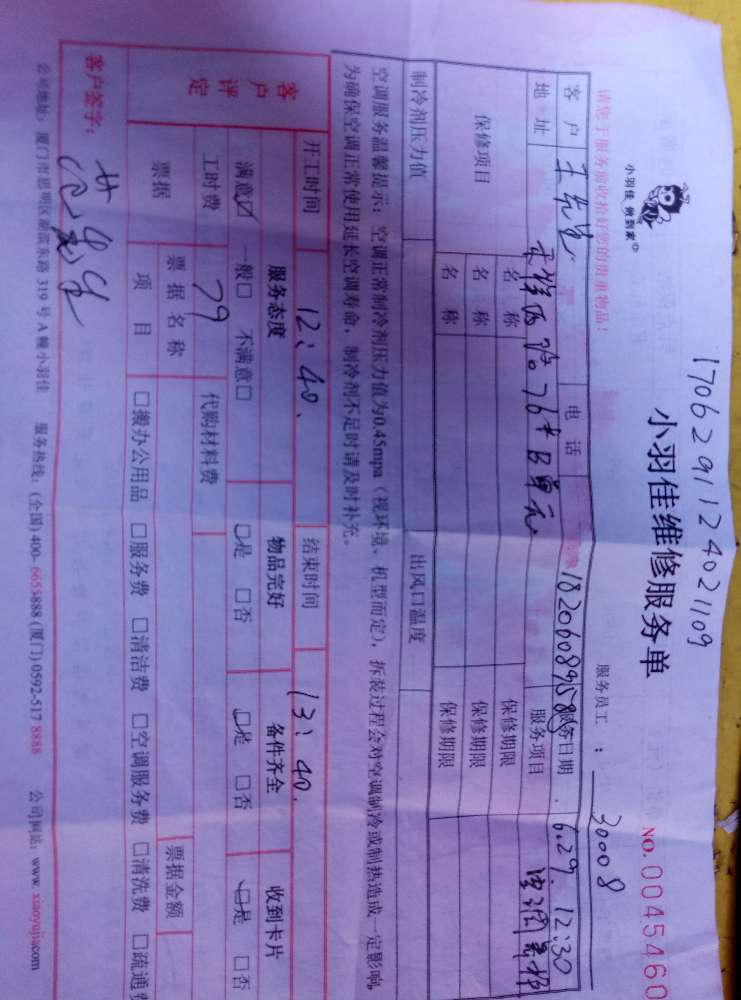 17062911124021109
小羽佳 做到家
小羽佳维修服务单
NO.0045460
请您于服务前收拾好您的贵重物品！
服务员工：30008
客户 王先生 电话 18206089588 服务日期 6.29. 12:30
地址 祥西路76# B单元 服务项目
保修项目 名称 保修期限
名称 保修期限
名称 保修期限
制冷剂压力值 出风口温度
空调服务温馨提示：空调正常制冷剂压力值为0.45mpa（视环境、机型而定），拆装过程会对空调制冷或制热造成一定影响。
为确保空调正常使用延长空调寿命，制冷剂不足时请及时补充。
开工时间 12:40. 结束时间 13:40.
客户评定 服务态度 物品完好 备件齐全 收到卡片
满意☑ 一般□ 不满意□ □是 □否 □是 □否 □是 □否
工时费 79 代购材料费
票据 票据名称 票据金额
项目 □搬办公用品 □服务费 □清洁费 □空调服务费 □清洗费 □疏通
客户签字：
公司地址：厦门市思明区湖滨东路319号A幢小羽佳 服务热线：(全国) 400-6655888 (厦门) 0592-517 8888 公司网站：www.xiaoyujia.com